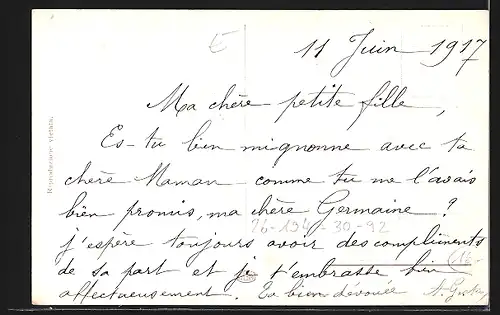 11 Juin 1917
Ma chère petite fille,
Es-tu bien mignonne avec ta
chère Maman comme tu me l'avais
bien promis, ma chère Germaine ?
76-194-30-92
j'espère toujours avoir des compliments
de sa part et je t'embrasse bien
affectueusement. Ta bien dévouée